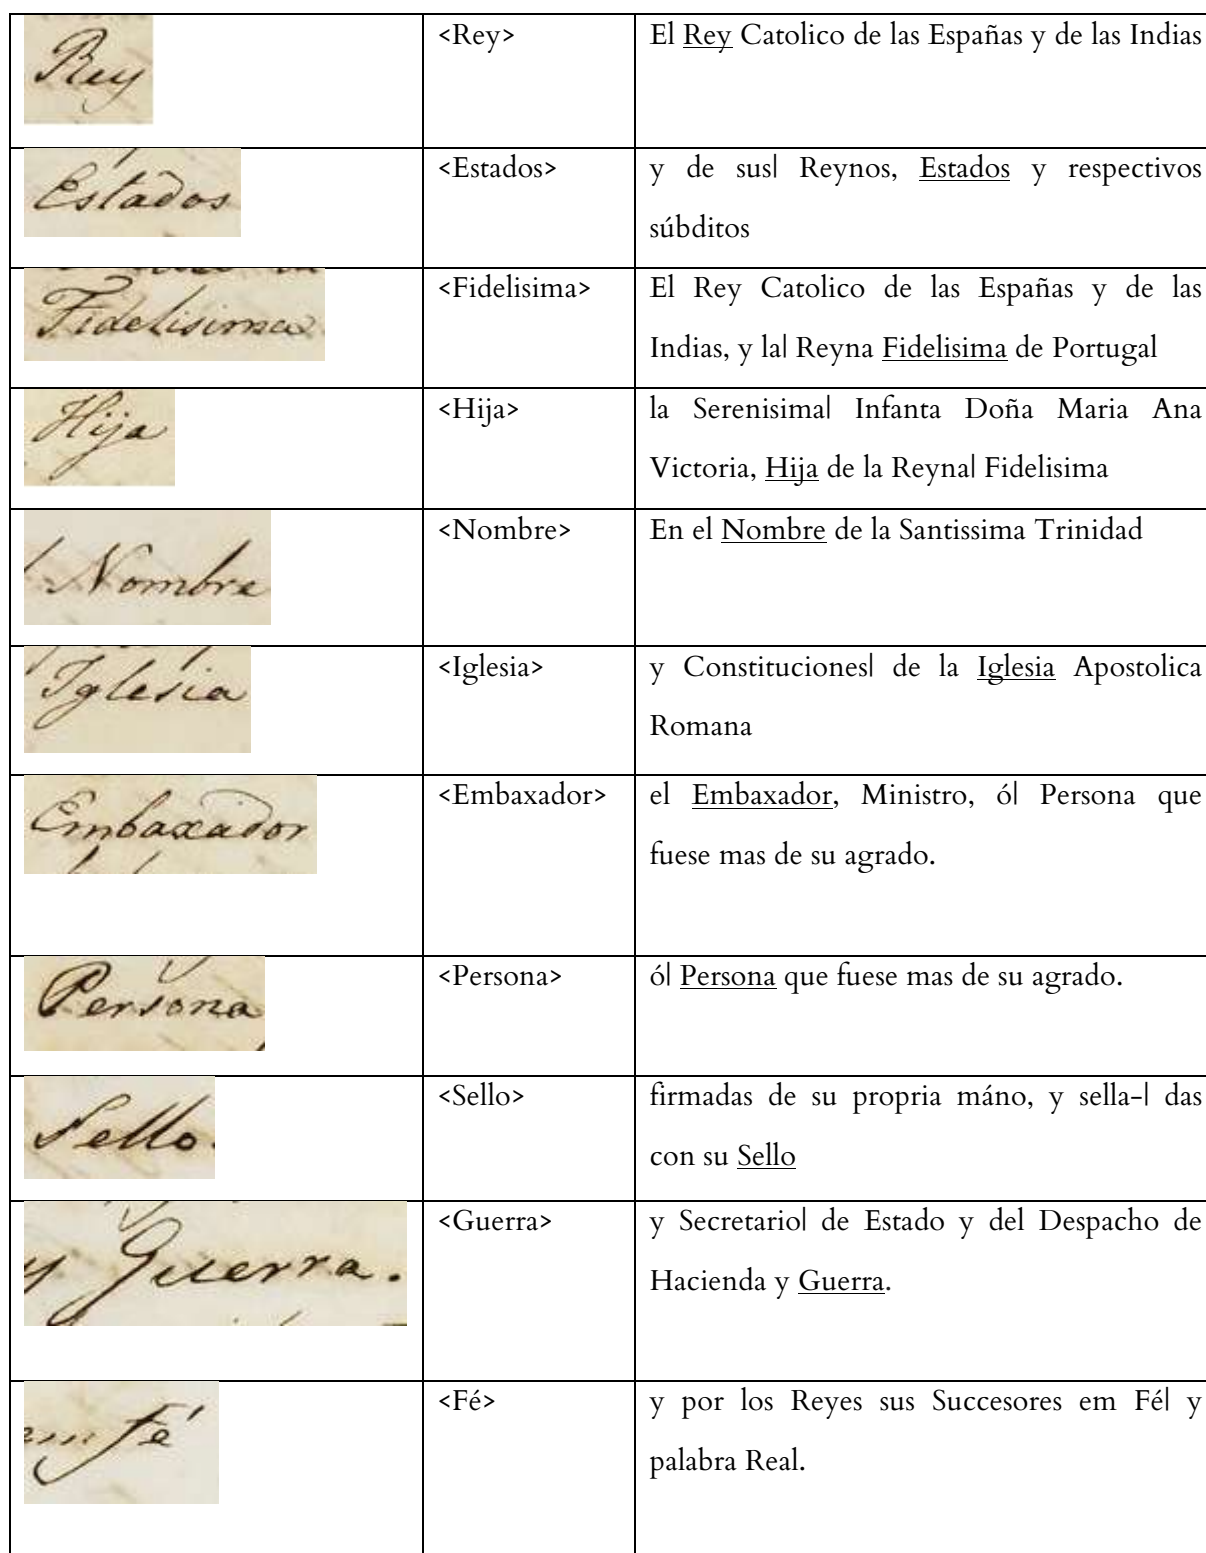 Rey <Rey> El Rey Catolico de las Españas y de las Indias
Estados <Estados> y de sus| Reynos, Estados y respectivos
súbditos
Fidelisima <Fidelisima> El Rey Catolico de las Españas y de las
Indias, y la| Reyna Fidelisima de Portugal
Hija <Hija> la Serenisima| Infanta Doña Maria Ana
Victoria, Hija de la Reyna| Fidelisima
Nombre <Nombre> En el Nombre de la Santissima Trinidad
Iglesia <Iglesia> y Constituciones| de la Iglesia Apostolica
Romana
Embaxador <Embaxador> el Embaxador, Ministro, ó| Persona que
fuese mas de su agrado.
Persona <Persona> ó| Persona que fuese mas de su agrado.
Sello. <Sello> firmadas de su propria máno, y sella-| das
con su Sello
y Guerra. <Guerra> y Secretario| de Estado y del Despacho de
Hacienda y Guerra.
em Fé <Fé> y por los Reyes sus Succesores em Fé| y
palabra Real.